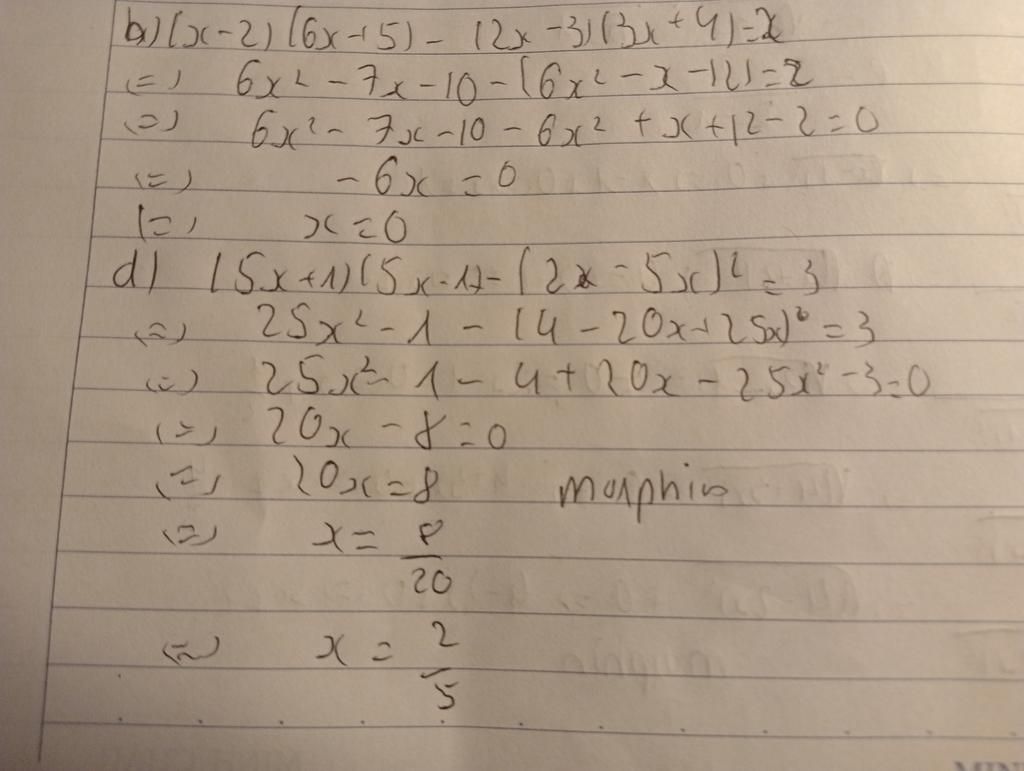 b) (x-2) (6x+5) - (2x-3)(3x+4)=2
(=) 6x² - 7x - 10 - (6x² - x - 12) = 2
(=) 6x² - 7x - 10 - 6x² + x + 12 - 2 = 0
(=) - 6x = 0
(=) x = 0
d) (5x+1)(5x-1) - (2x - 5x)² = 3
(=) 25x² - 1 - (4 - 20x + 25x)² = 3
(=) 25x² - 1 - 4 + 20x - 25x² - 3 = 0
(=) 20x - 8 = 0
(=) 20x = 8 morphin
(=) x = 8/20
(=) x = 2/5